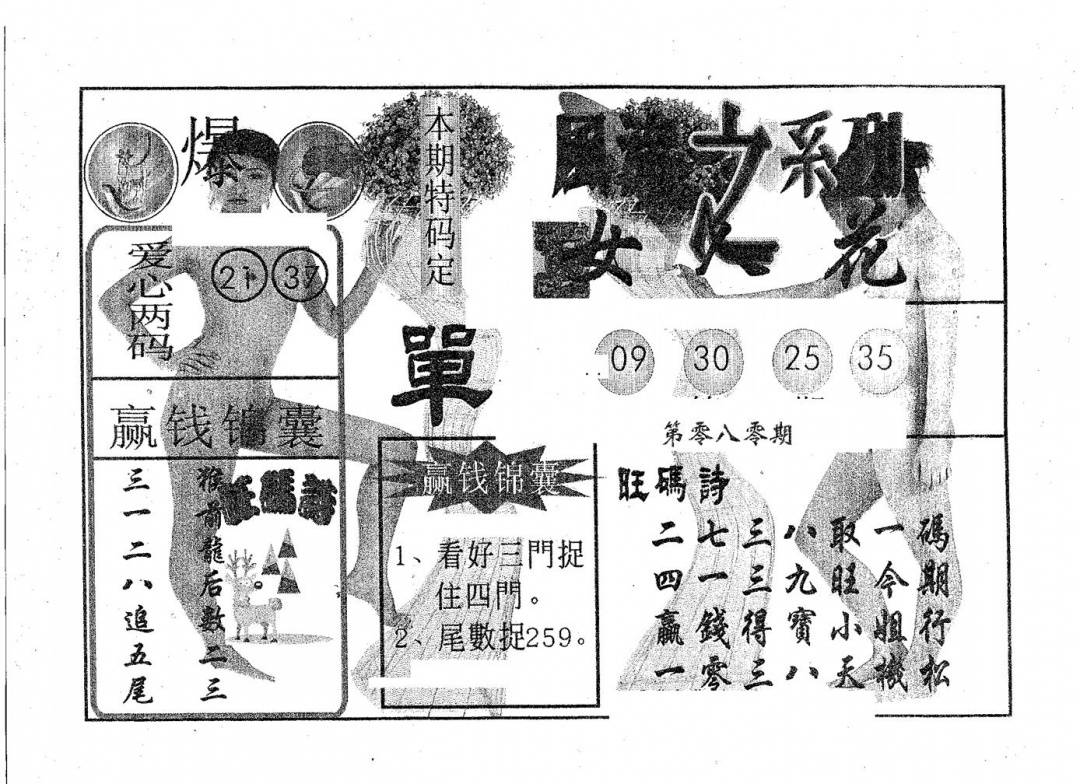 爆
本期特码定
單
爱心两码
21 37
赢钱锦囊
猴前龍后数二三
三一二八追五尾
旺碼詩
赢钱锦囊
1、看好三門捉
住四門。
2、尾數捉259。
系列
女 花
09 30 25 35
第零八零期
旺碼詩
二七三八取一碼
四一三九旺今期
贏錢得寶小姐行
一零三八天機松